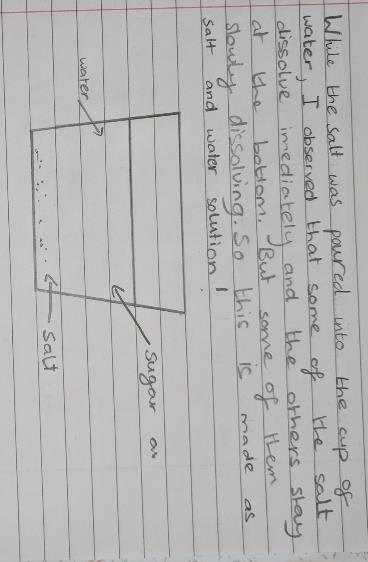 While the salt was poured into the cup of
water, I observed that some of the salt
dissolve imediately and the others stay
at the bottom. But some of them
slowly dissolving. So this is made as
salt and water solution!
water
sugar as
Salt